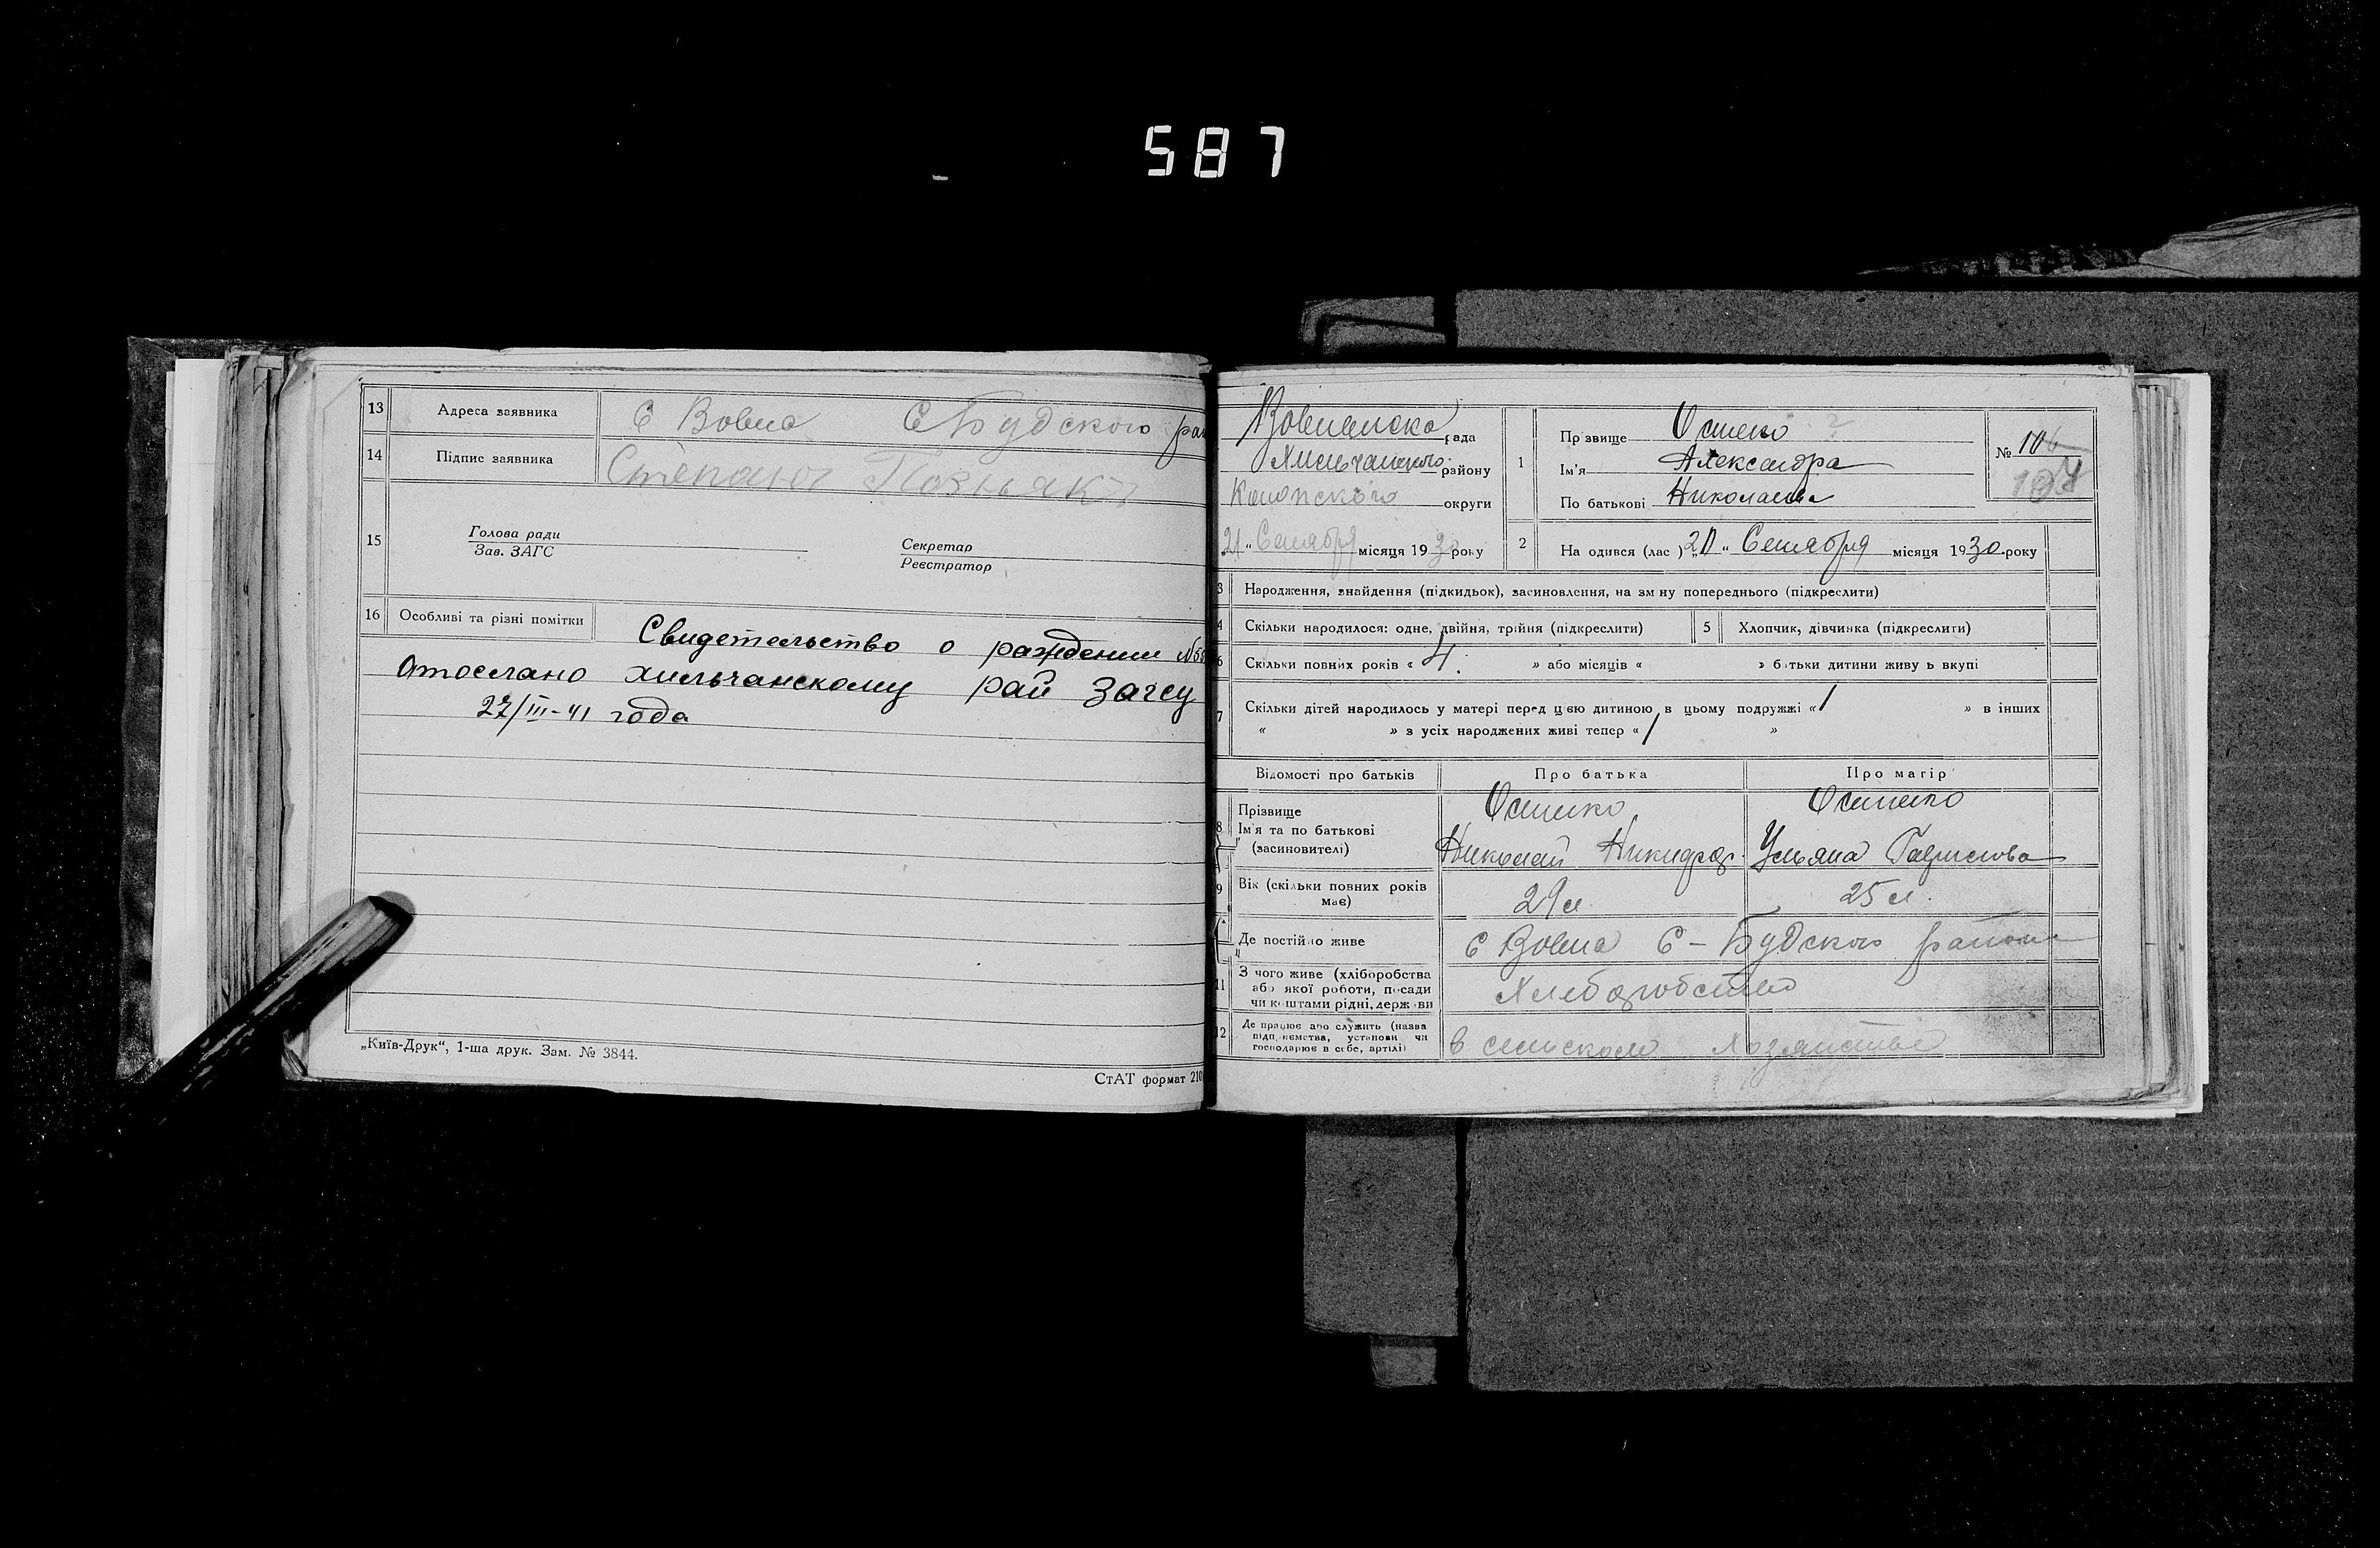 587
13 Адреса заявника С Вовна СБудского рай
14 Підпис заявника Степана Позняка
15 Голова ради
Зав. ЗАГС
Секретар
Реєстратор
16 Особливі та різні помітки Свидетельство о рождении №
Отослано хильчанскому рай Загсу
27/III-41 года
„Київ-Друк“, 1-ша друк. Зам. № 3844.
СтАТ формат 210
Вовнянска рада
Хильчанского району
Конопского округи
„21“ Сентября місяця 1930 року
1 Прізвище Осипенко ?
Ім'я Александра
По батькові Николаевна
№ 106
107
2 Народився (лас ) „20“ Сентября місяця 1930.року
3 Народження, знайдення (підкидьок), засиновлення, на зміну попереднього (підкреслити)
4 Скільки народилося: одне, двійня, трійня (підкреслити)
5 Хлопчик, дівчинка (підкреслити)
6 Скільки повних років « 4. » або місяців « » батьки дитини живуть вкупі
7 Скільки дітей народилось у матері перед цією дитиною в цьому подружжі « 1 » в інших
« » з усіх народжених живі тепер « 1 »
Відомості про батьків Про батька Про матір
8 Прізвище
Ім'я та по батькові
(засиновителі)
Николай Никифор. Ульяна
9 Вік (скільки повних років має) 29 л 25 л.
Де постійно живе С Вовна С-Будского района
11 З чого живе (хліборобства
або якої роботи, посади
чи коштами рідні, держави
Хлеборобство
12 Де працює або служить (назва
підприємства, установи чи
господарює в себе, артілі)
в сельском хозяйстве